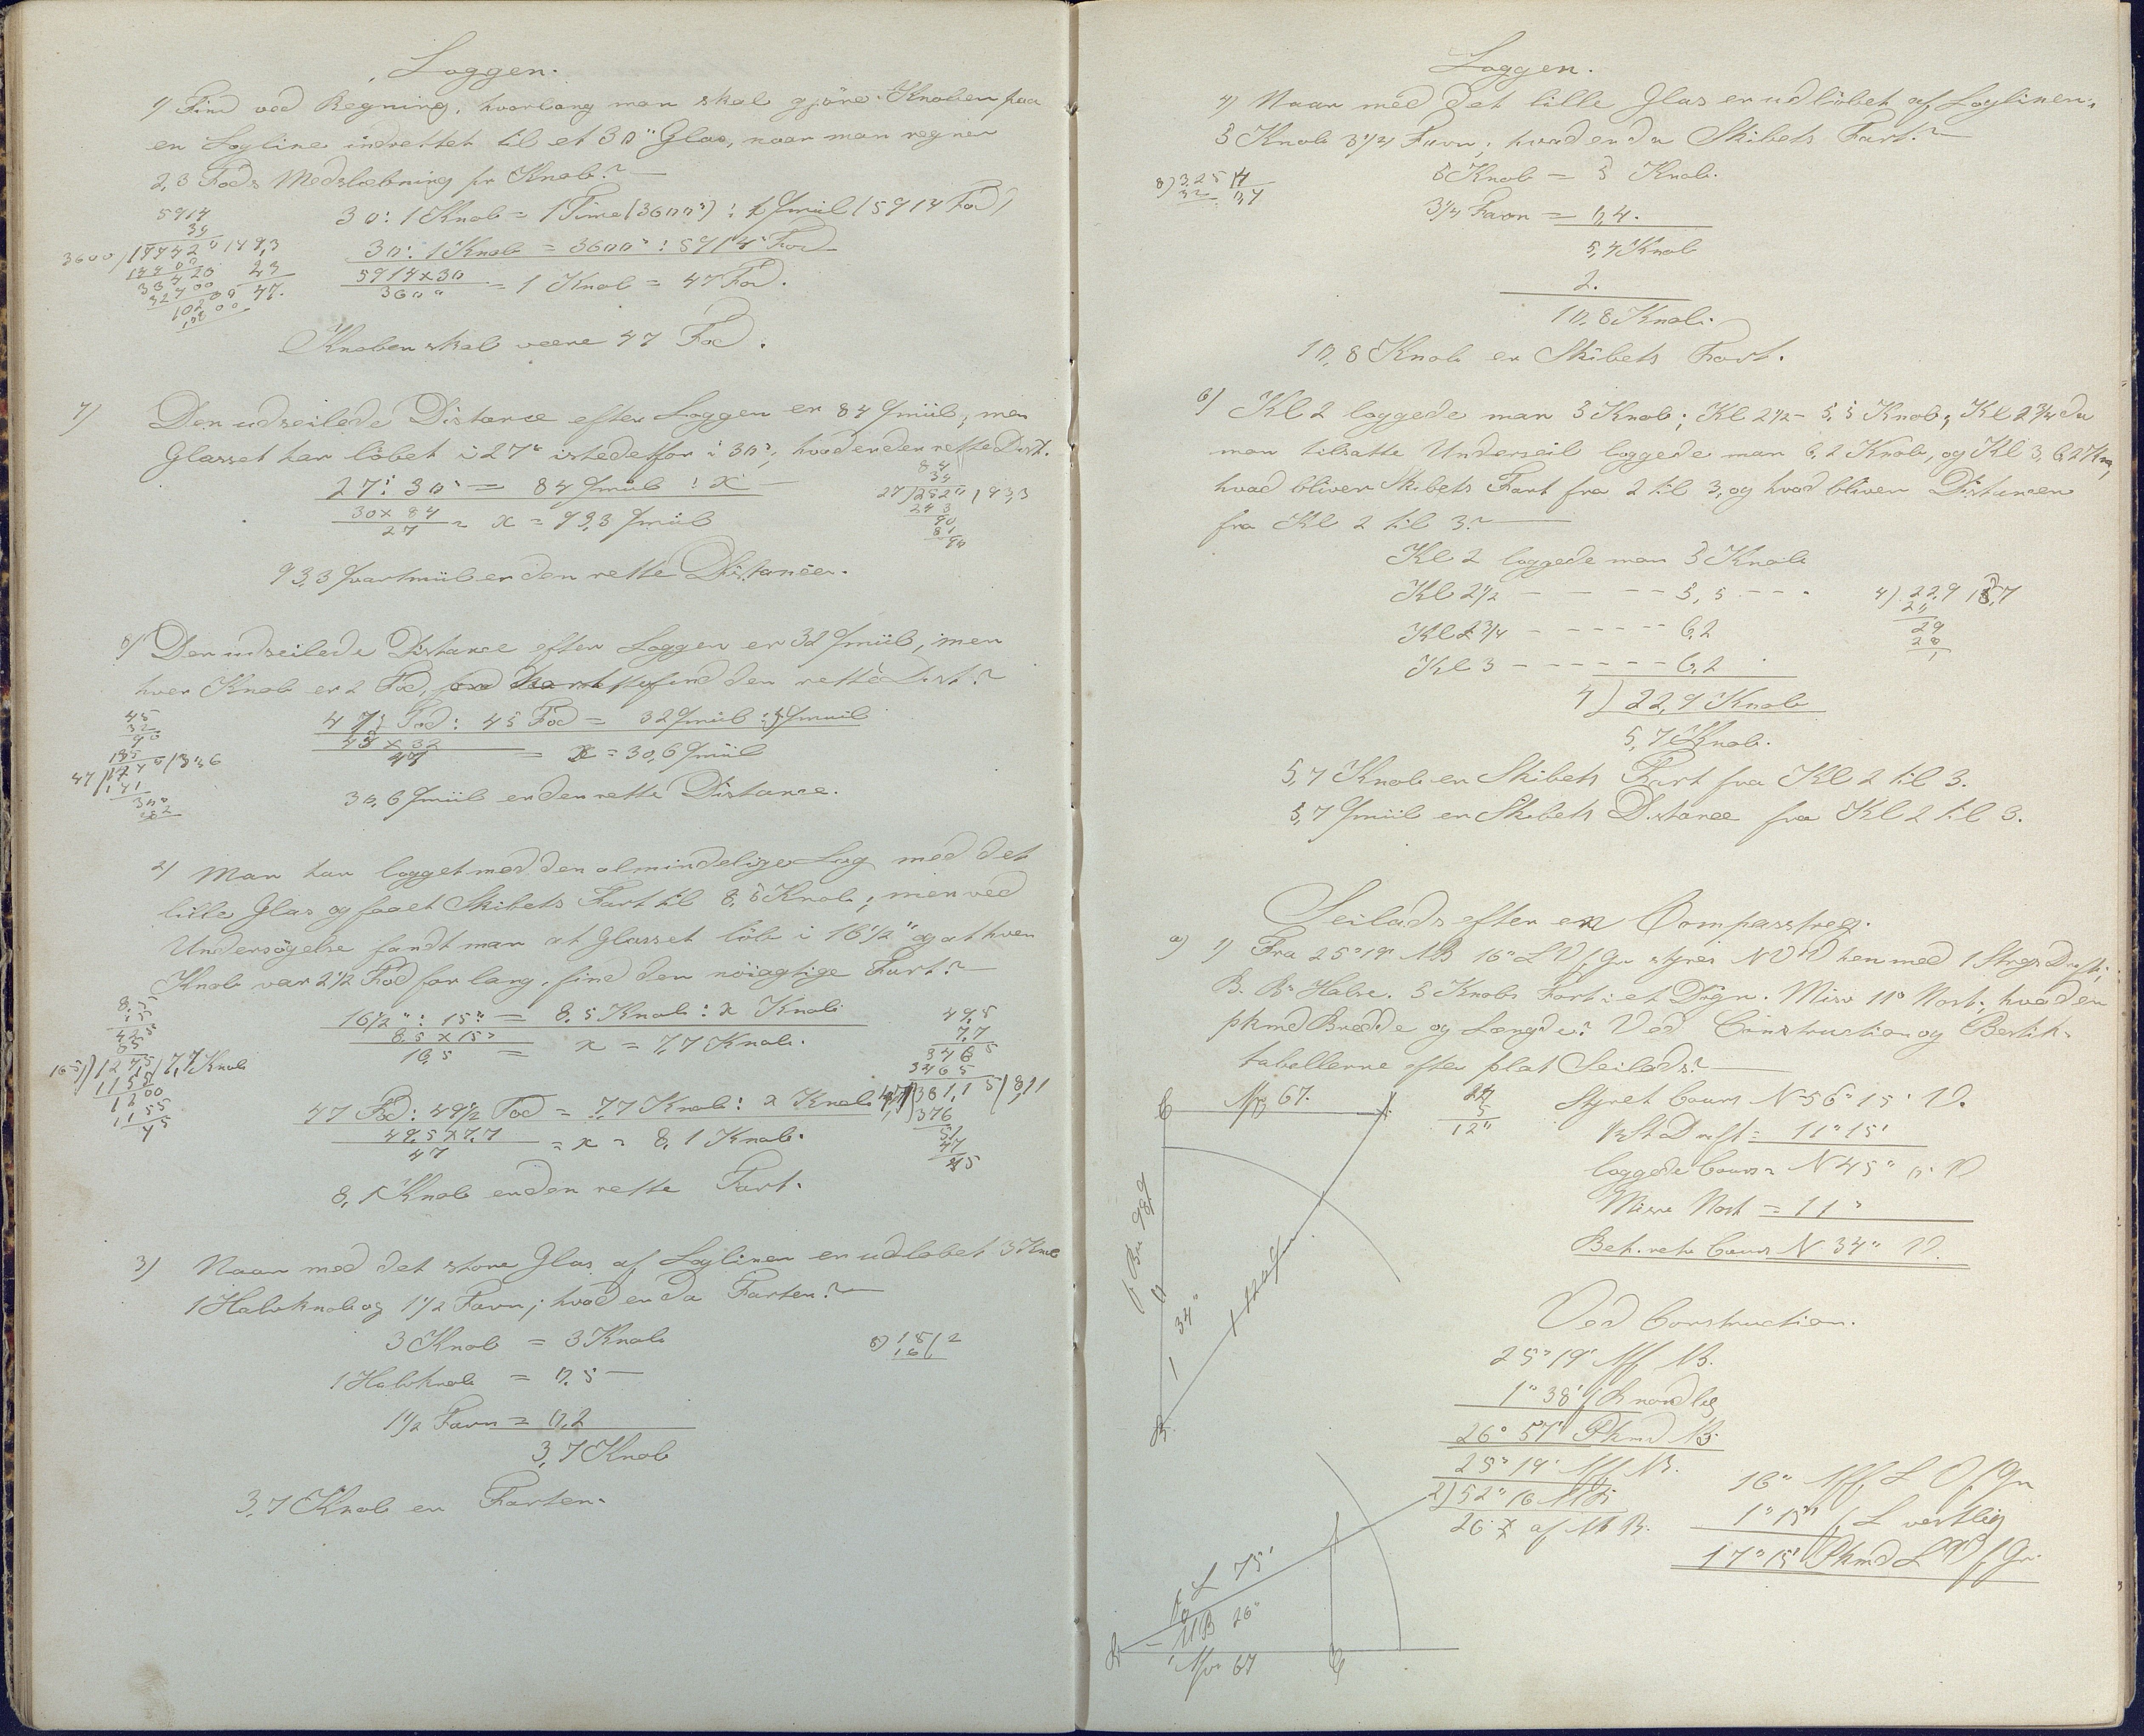 Loggen.
1) Find ved Regning, hvorlang man skal gjöre Knoben paa
en Logline indrettet til et 30" Glas, naar man regner
2,3 Fods Medslæbning pr Knob?
30: 1 Knob = 1 Time (3600"): 1 Qmiil (5914 Fod)
30: 1 Knob = 3600": 5914 Fod
5914 x 30
3600 = 1 Knob = 47 Fod.
5914
30
3600/177420/49,3
14400 2,3
33420 47.
32400
10200
Knoben skal være 47 Fod.
7) Den udseilede Distance efter Loggen er 84 Qmiil, men
Glasset har löbet i 27" istedetfor i 30", hvad er den rette Dist.
27": 30" = 84 Qmiil : x
30 x 84
27 = x = 93,3 Qmiil
84
30
27/2520/93,3
243
90
81
90
93,3 Qvartmiil er den rette Distance.
8) Den udseilede Distance efter Loggen er 32 Qmiil, men
hver Knob er 2 Fod, find den rette Dist?
47 Fod: 45 Fod = 32 Qmiil : x Qmiil
45 x 32
47 = x = 30,6 Qmiil
45
32
90
135
47/1440/30,6
141
300
282
30,6 Qmiil er den rette Distance.
2) Man har logget med den almindelige Log med det
lille Glas og faaet Skibets Fart til 8,5 Knob; men ved
Undersögelse fandt man at Glasset löb i 16 1/2" og at hver
Knob var 2 1/2 Fod for lang, find den nöiagtige Fart?
16 1/2": 15" = 8,5 Knob : x Knob
8,5 x 15
16,5 = x = 7,7 Knob.
8,5
15
425
85
165/1275/7,7 Knob
1155
1200
1155
45
47 Fod: 49 1/2 Fod = 7,7 Knob: x Knob
49,5 x 7,7
47 = x = 8,1 Knob.
49,5
7,7
3465
3465
47/381,15/8,11
376
51
47
45
8,1 Knob er den rette Fart.
3) Naar med det store Glas af Loglinen er udlöbet 3 Knob
1 Halvknob og 1 1/2 Favn; hvad er da Farten?
3 Knob = 3 Knob
1 Halvknob = 0,5 —
1 1/2 Favn = 0,2
3,7 Knob
8) 15/2
16
3,7 Knob er Farten.
Loggen.
4) Naar med det lille Glas er udlöbet af Loglinen,
5 Knob 3 1/4 Favn; hvad er da Skibets Fart?
5 Knob = 5 Knob.
3 1/4 Favn = 0,4.
5,4 Knob
2.
10,8 Knob.
8) 3,25
32 0,4
10,8 Knob er Skibets Fart.
6) Kl 2 loggede man 5 Knob; Kl 2 1/2 - 5,5 Knob; Kl 2 3/4 da
man tilsatte Underseil loggede man 6,2 Knob, og Kl 3, 6,2 Kn,
hvad bliver Skibets Fart fra 2 til 3, og hvad bliver Distancen
fra Kl 2 til 3?
Kl 2 loggede man 5 Knob
Kl 2 1/2 - - - - 5,5 - - -
Kl 2 3/4 - - - - - 6,2
Kl 3 - - - - - - 6,2
4) 22,9 Knob
5,7 Knob.
4) 22,9 /5,7
20
29
28
1
5,7 Knob er Skibets Fart fra Kl 2 til 3.
5,7 Qmiil er Skibets Distance fra Kl 2 til 3.
Seilads efter en Compasstreg.
a) 1) Fra 25° 19' NB 16° LV f Gr styres NVtV hen med 1 Stregs Drift,
B. B. Halse. 5 Knobs Fart i et Dögn. Misv 11° Vest; hvad er
pkmd Bredde og Længde? Ved Construction og Bestik-
tabellerne efter plat Seilads?
24
5
120
Styret Cours N 56° 15' V.
1 St Drift = 11° 15'
loggede Cours = N 45° 0' V
Misv Vest = 11°
Beh. retv Cours N 34° V.
C Afv 67. A
f Br 98'
34°
B
Ved Construction.
25° 19' Aff NB.
1° 38' f B nordlig
26° 57' Pkmd NB.
25° 19' Aff NB.
2) 52° 16
26° af M B.
16° Aff L V f Gr
1° 15' f L vestlig
17° 15' Pkmd L V f Gr.
f L 75'
MB 26°
Afv 67
B
C